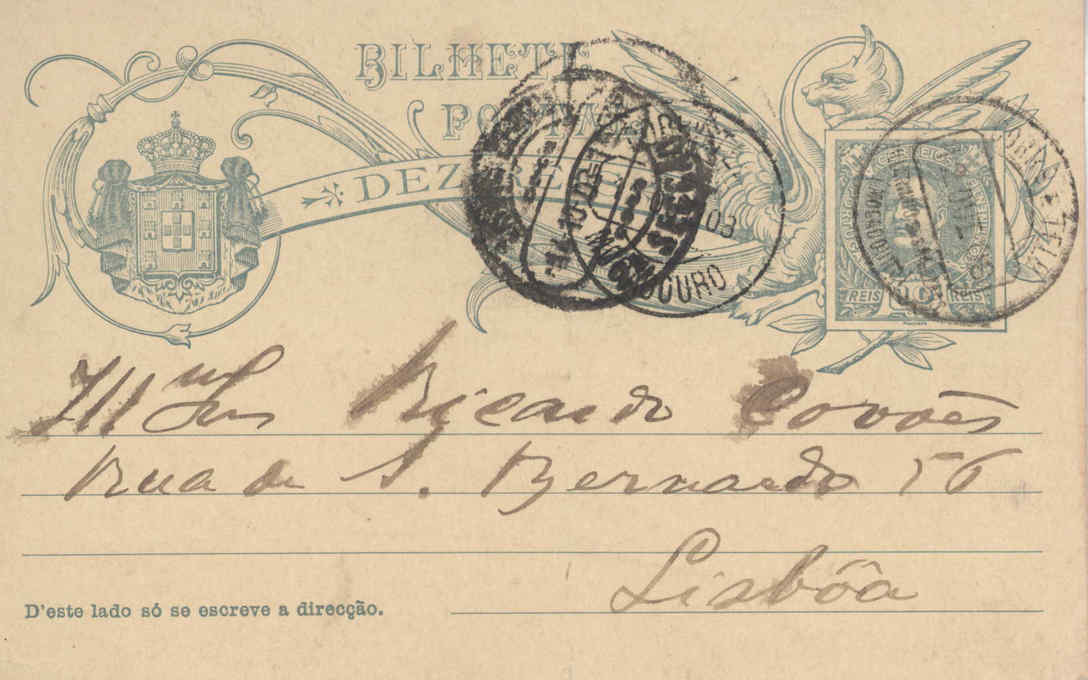 BILHETE
POSTAL
DEZ REIS
REIS 10 REIS
03
DOURO
Ill.mo Snr Ricardo Covões
Rua de S. Bernardo 56
Lisbôa
D'este lado só se escreve a direcção.